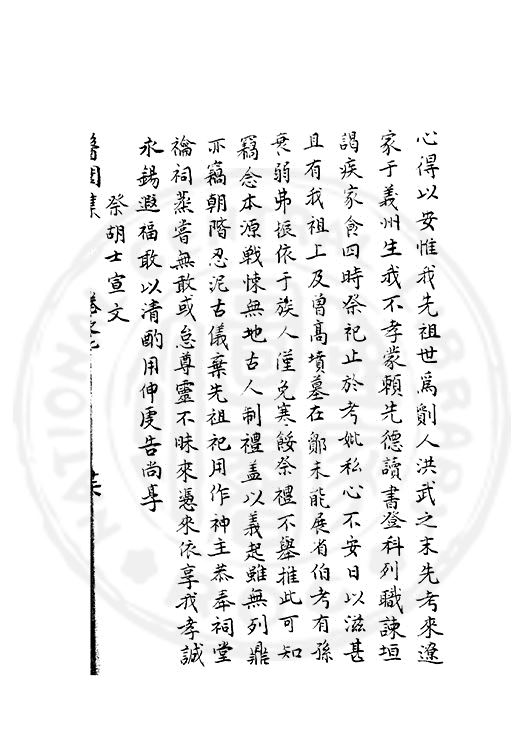 心得以安惟我先祖世爲鄞人洪武之末先考來遼
家于義州生我不孝蒙賴先德讀書登科列職諫垣
謁疾家食四時祭祀止於考妣私心不安日以滋甚
且有我祖上及曾高墳墓在鄞未能展省伯考有孫
衰弱弗振依于族人僅免寒餒祭禮不舉推此可知
竊念本源戰悚無地古人制禮盖以義起雖無列鼎
亦竊朝階忍泥古儀棄先祖祀用作神主恭奉祠堂
禴祠蒸嘗無敢或怠尊靈不昧來憑來依享我孝誠
永錫遐福敢以清酌用伸虔告尚享
祭胡士宣文
醫閭集
卷之七